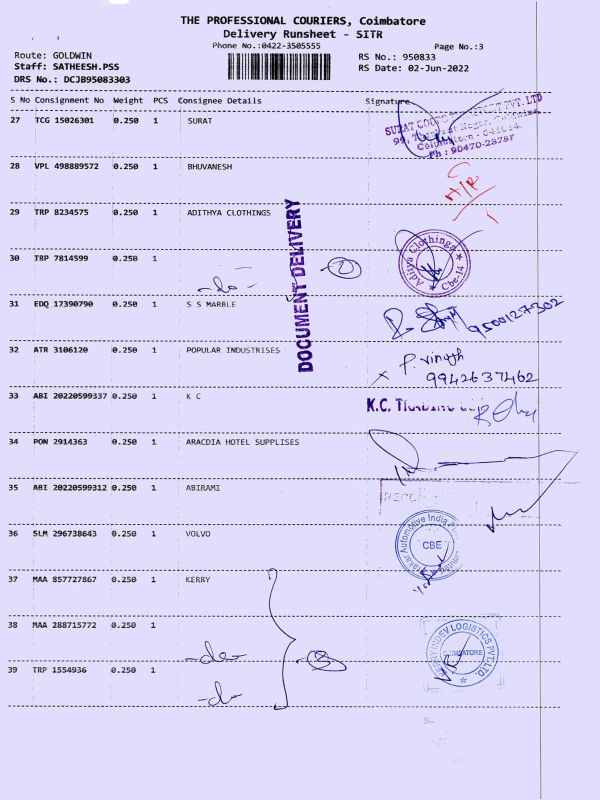 THE PROFESSIONAL COURIERS, Coimbatore
Delivery Runsheet - SITR
Phone No.:0422-3505555
Page No.:3
Route: GOLDWIN
RS No.: 950833
Staff: SATHEESH.PSS
RS Date: 02-Jun-2022
DRS No.: DCJB95083303
S No Consignment No Weight PCS Consignee Details Signature
27 TCG 15026301 0.250 1 SURAT
SURAT PVT. LTD
28 VPL 498889572 0.250 1 BHUVANESH
29 TRP 8234575 0.250 1 ADITHYA CLOTHINGS
DOCUMENT DELIVERY
30 TRP 7814599 0.250 1
Aditya Clothings Cbe-14
-do- 2
31 EDQ 17390790 0.250 1 S S MARBLE
9500127302
32 ATR 3106120 0.250 1 POPULAR INDUSTRISES
P. Vinoth
9942637462
33 ABI 20220599337 0.250 1 K C
K.C.
34 PON 2914363 0.250 1 ARACDIA HOTEL SUPPLISES
35 ABI 20220599312 0.250 1 ABIRAMI
36 SLM 296738643 0.250 1 VOLVO
Automotive India
CBE
37 MAA 857727867 0.250 1 KERRY
38 MAA 288715772 0.250 1
KERRY INDEV LOGISTICS PVT. LTD.
COIMBATORE
-do- 3
39 TRP 1554936 0.250 1
-do-